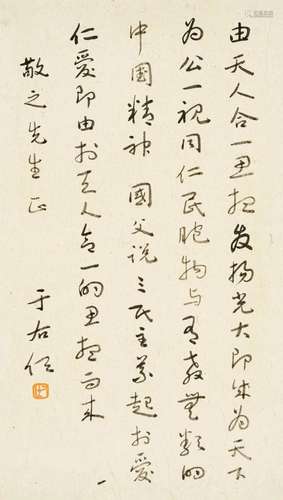 由天人合一思想發揚光大即成為天下
為公一視同仁民胞物與有教無類的
中國精神 國父說三民主義起於愛
仁愛即由於天人合一的思想而來
敬之先生正
于右任